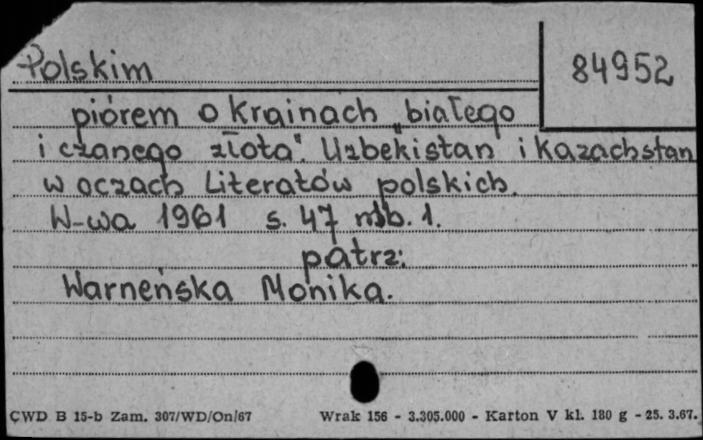 Polskim
84952
piórem o krainach „białego
i czanego złota". Uzbekistan i Kazachstan
w oczach Literatów polskich.
W-wa 1961 s. 47 nlb. 1.
patrz:
Warneńska Monika.
CWD B 15-b Zam. 307/WD/On/67 Wrak 156 - 3.305.000 - Karton V kl. 180 g - 25. 3.67.